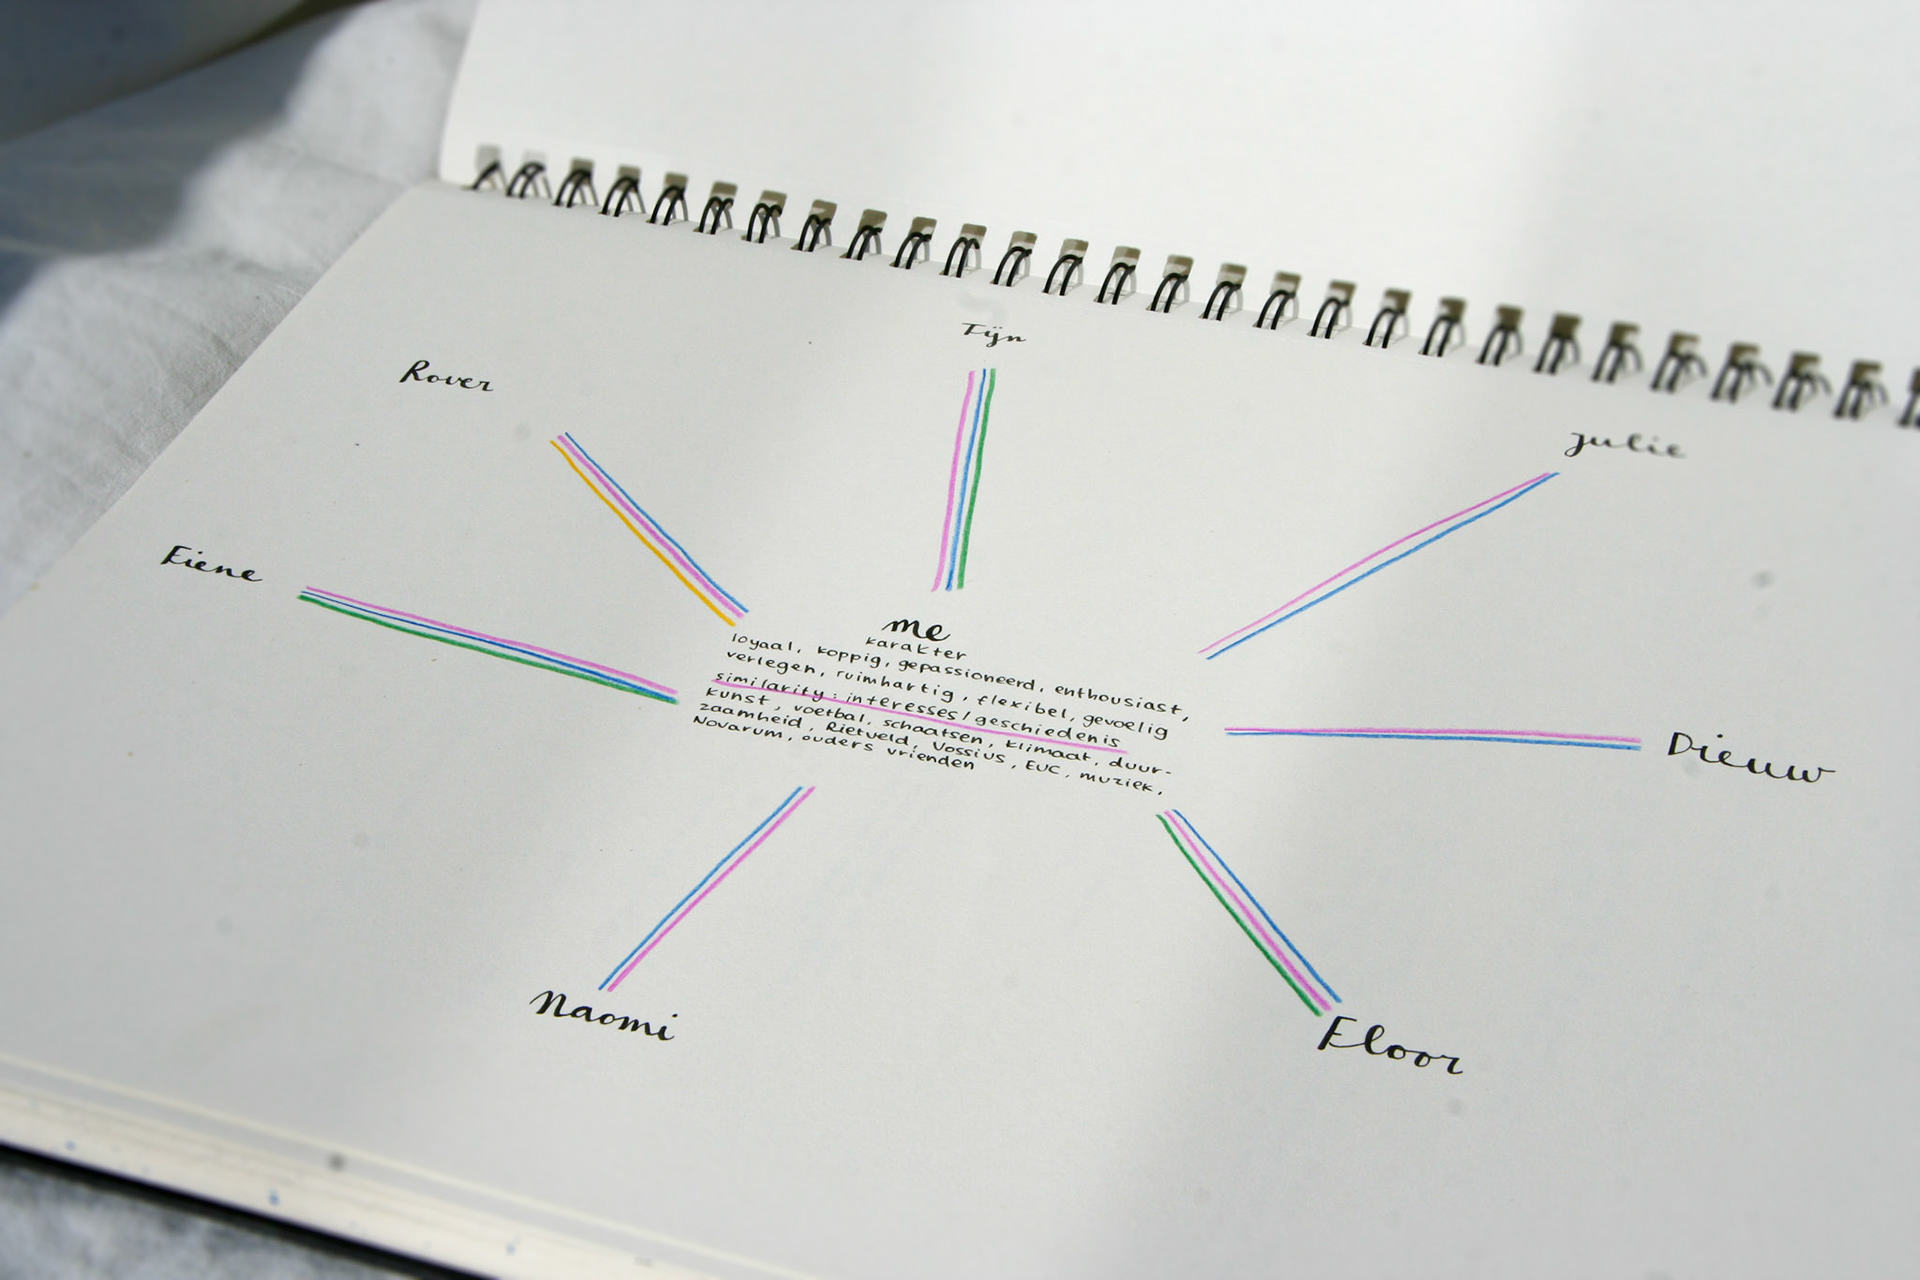 Tijn
Rover
Julie
Fiene
me
karakter
loyaal, koppig, gepassioneerd, enthousiast,
verlegen, ruimhartig, flexibel, gevoelig
similarity: interesses/geschiedenis
kunst, voetbal, schaatsen, klimaat, duur-
zaamheid, Rietveld, Vossius, EUC, muziek,
Novarum, ouders vrienden
Dieuw
Naomi
Floor